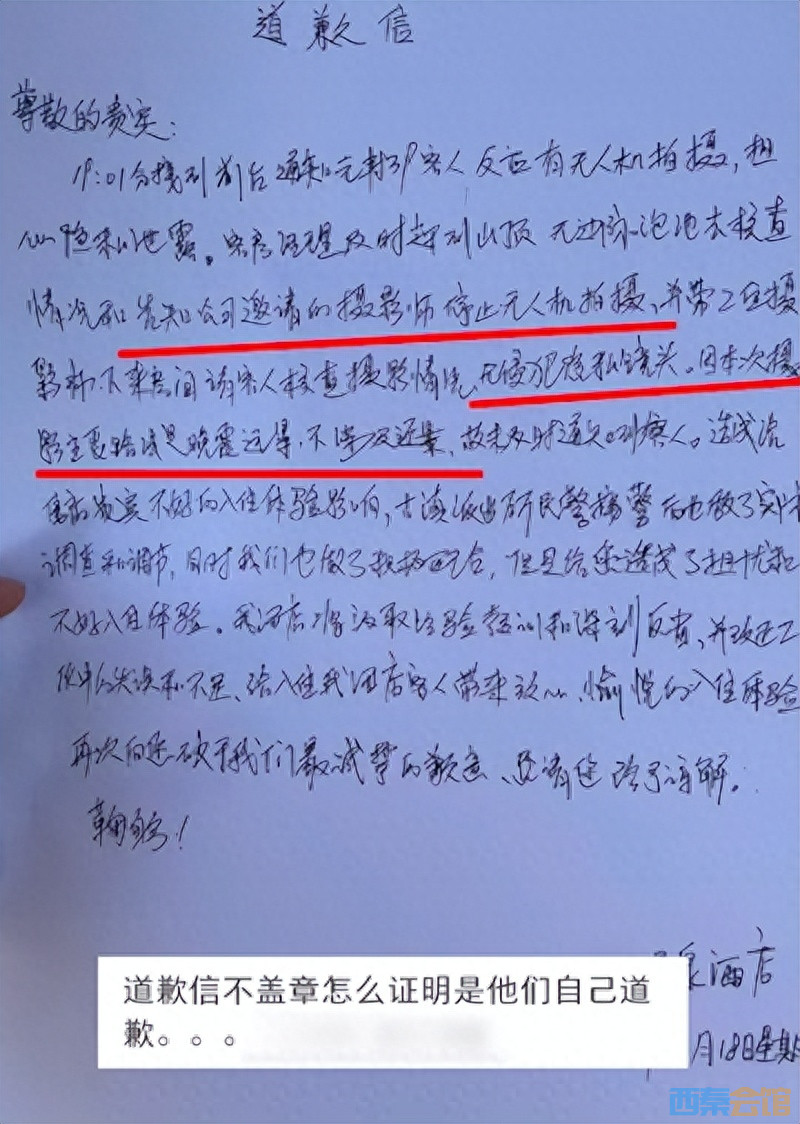 道歉信
尊敬的贵宾:
19:01分接到前台通知 客人反应有无人机拍摄,担
心隐私泄露。客房经理及时赶到山顶无边际泡池去核查
情况和告知公司邀请的摄影师停止无人机拍摄,并带2位摄
影师下来房间请客人核查摄影情况,无侵犯隐私镜头。因本次摄
影主要拍摄是晚霞远景,不涉及近景,故未及时通知到客人。造成
贵宾不好的入住体验影响,派出所民警接警后也做了实地
调查和调节,同时我们也做了积极配合,但是给您造成了担忧和
不好入住体验。我酒店将汲取经验教训和深刻反省,并改进工
作中的失误和不足,给入住我酒店客人带来放心、愉悦的入住体验
再次向您致于我们最诚挚的歉意,还请您给予谅解。
鞠躬!
泉酒店
月18日星期
道歉信不盖章怎么证明是他们自己道
歉。。。
西秦会馆